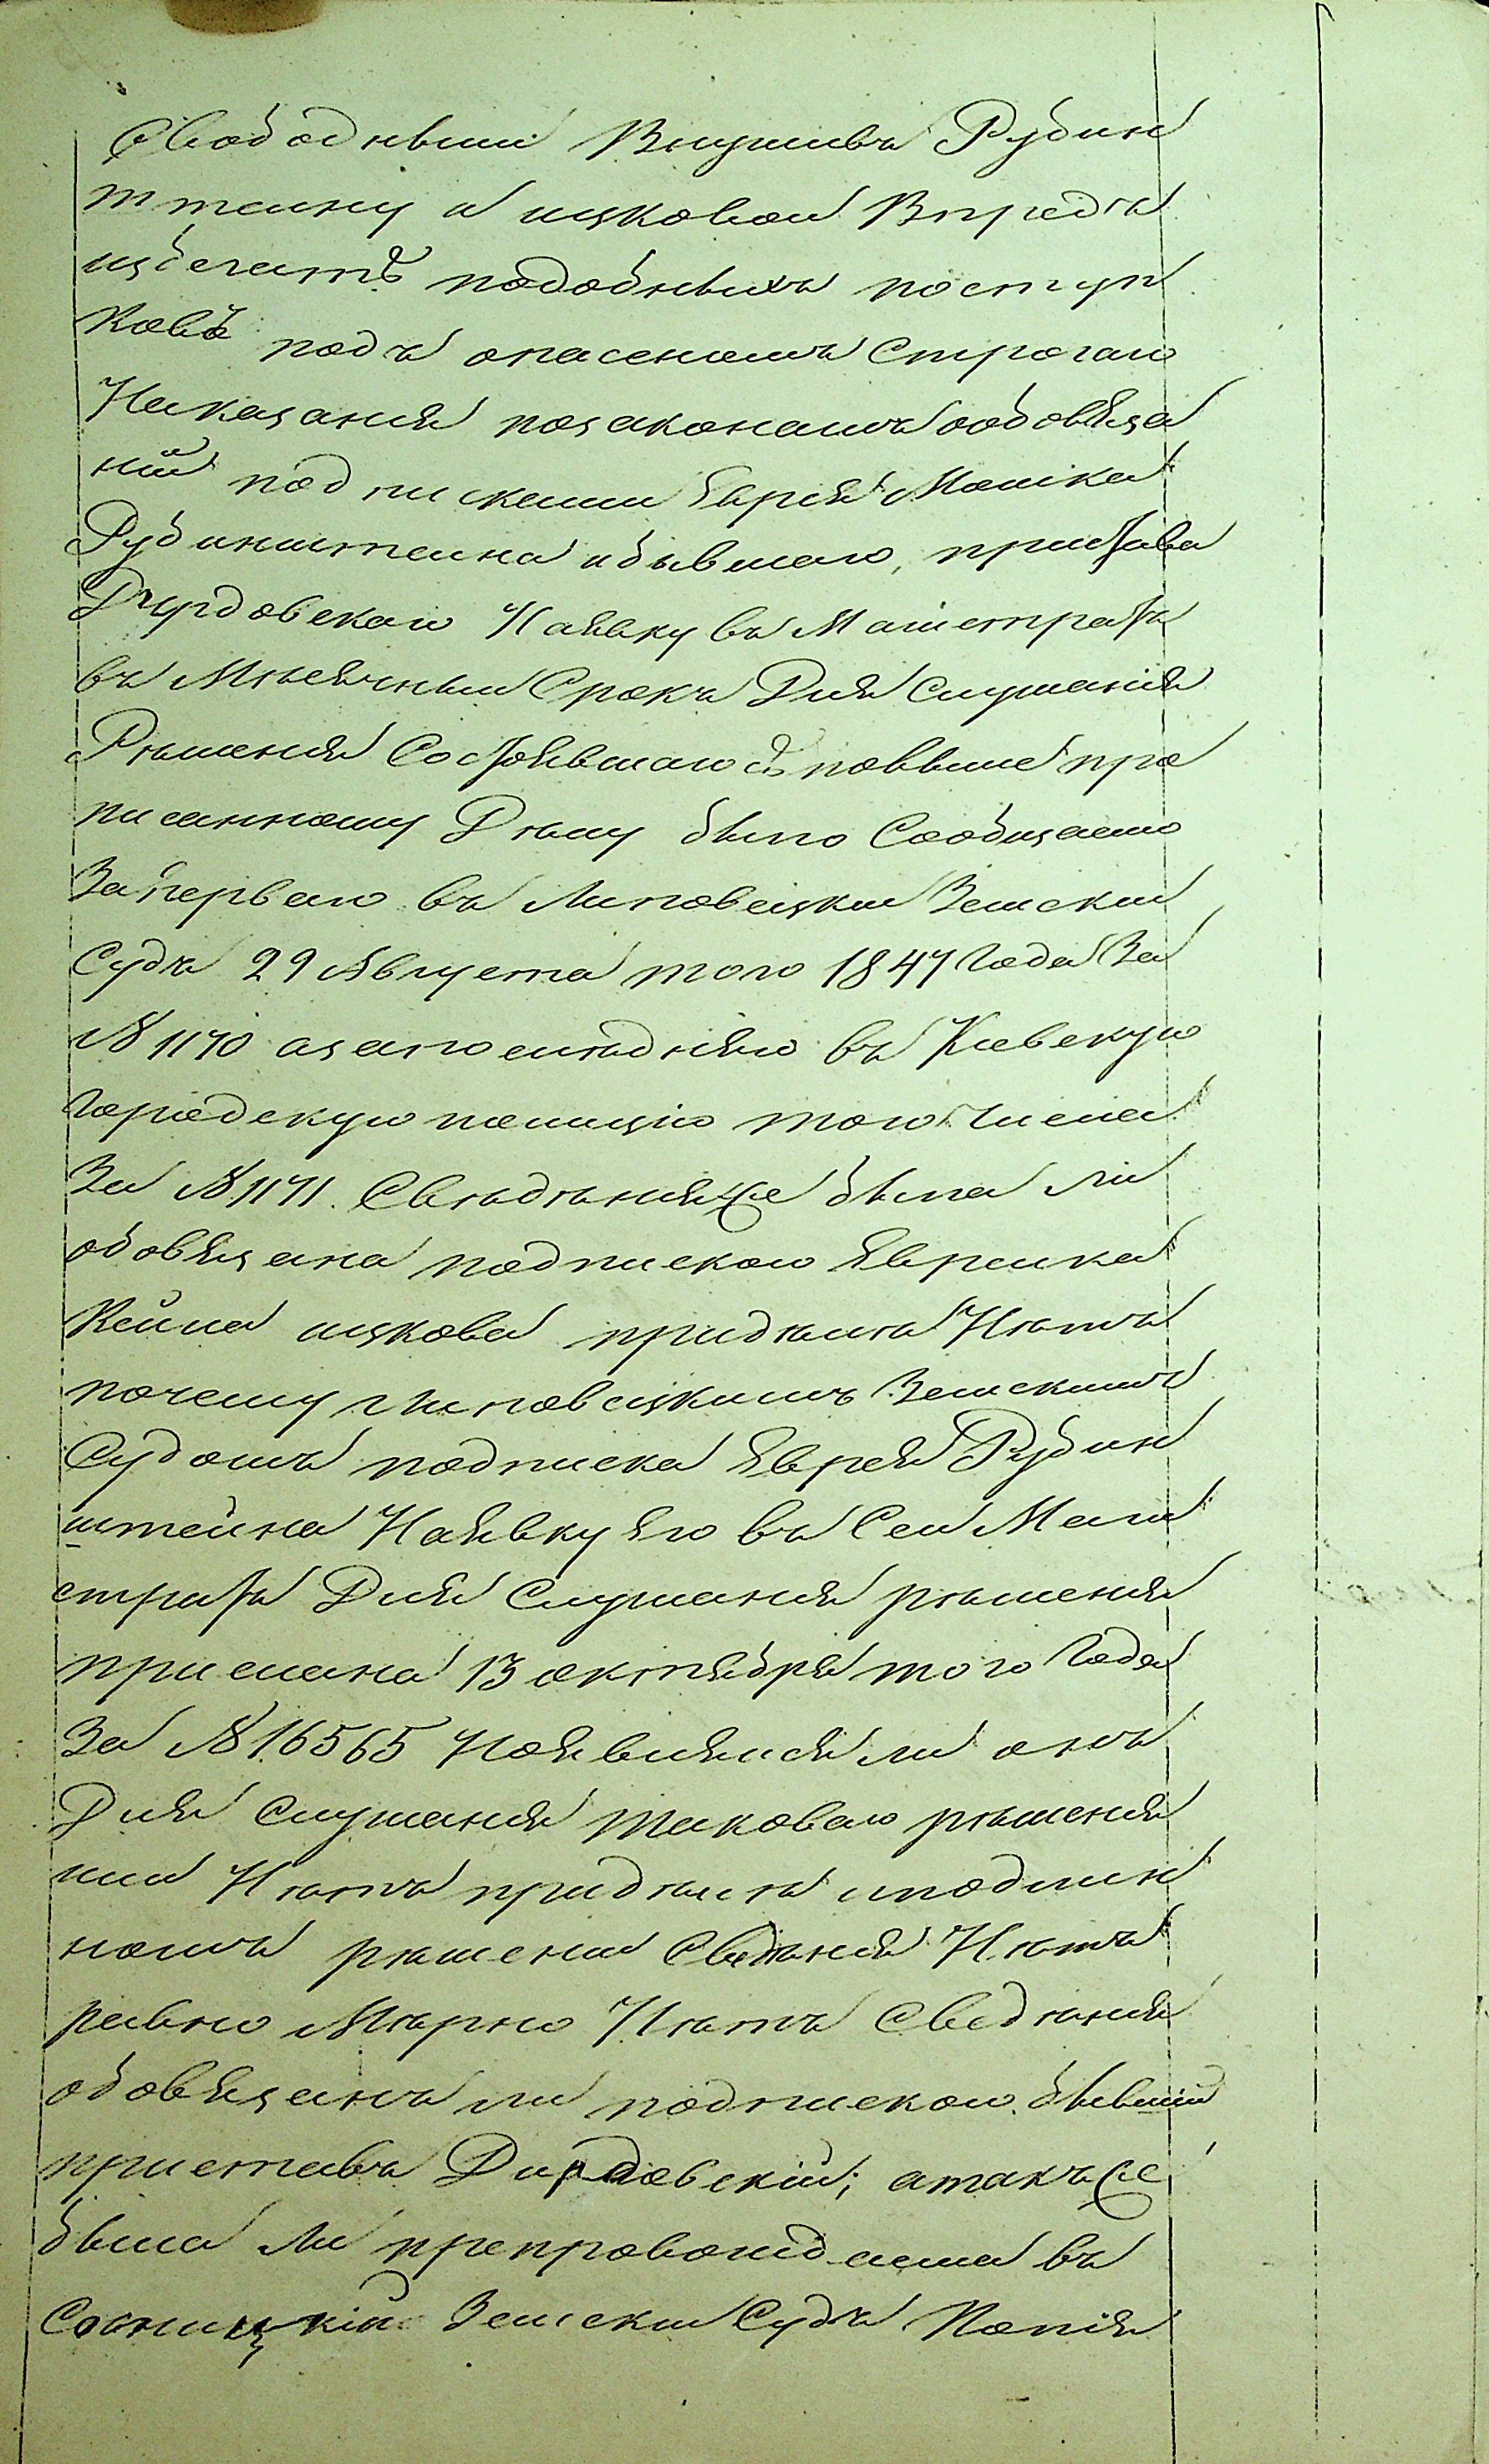 Свободными Внушивъ Рубин
штеину и ицковои Впредъ
избегатъ подобныхъ поступ
ковъ подъ опасениемъ Строгаго
Наказания позаконамъ ообовяза
нии подписками Еврея Мошка
Рубинштеина ибывшаго, пристава
Дирдовскаго Наявку въ Магистратъ
въ Мѣсячный Срокъ Для Слушания
Рѣшения Состоявшагося повыше про
писанному Дѣлу было Сообщаемо
Запервого въ Липовецкий Земский
Судъ 29 Августа того 1847 года За
№ 1170 азапоследнюю въ Киевскую
городскую полицию того числа
За № 1171. Сведѣнияже была ли
обовязана подпискою Еврейка
Кейла ицкова придѣлѣ Нѣтъ
почему Липовецкимъ Земскимъ
Судомъ подписка Еврея Рубин
штейна Наявку Его въ Сей Маги
стратъ Для Слушания рѣшения
прислана 13 октября того Года
За № 16565 Ноявлялся ли онъ
Для Слушания таковаго рѣшения
или Нѣтъ придѣлѣ иподлин
номъ рѣшении Сведѣния Нѣтъ
равно Мѣрно Нѣтъ Сведѣния
обовязанъ ли подпискою бывший
приставъ Дирдовский; атакъже
была ли препровождаема въ
Сосницкий Земский Судъ Копия